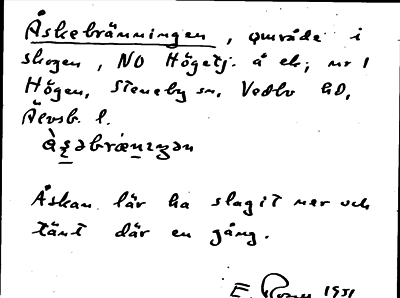 Åskebränningen, område i
skogen, NO Högetj. å ek; nr 1
Högen, Steneby sn, Vedbo hd,
Älvsb. l.
Åskan lär ha slagit ner och
tänt där en gång.
E. 1951